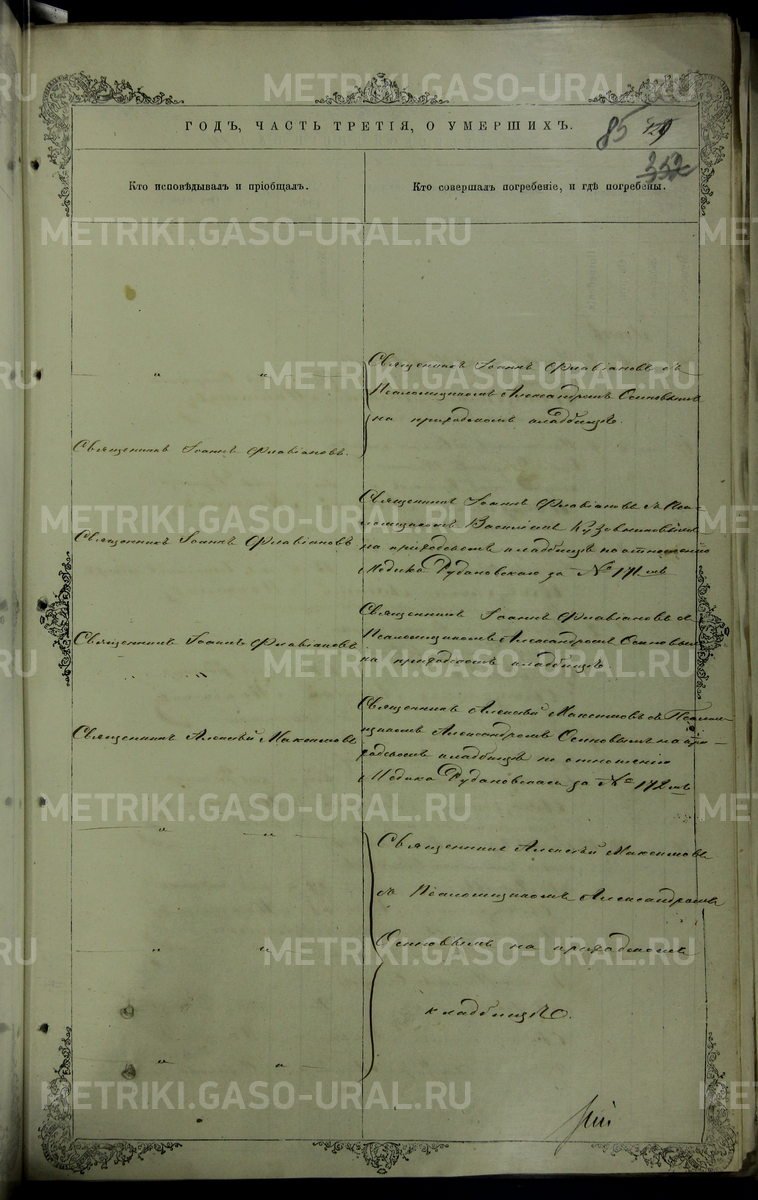 METRIKI.GASO-URAL.RU
ГОДЪ, ЧАСТЬ ТРЕТІЯ, О УМЕРШИХЪ.
85
352
Кто исповѣдывалъ и пріобщалъ.
Кто совершалъ погребеніе, и гдѣ погребены.
„ „
Священникъ Іоаннъ Флавіановъ съ
Псаломщикомъ Александромъ Осиновымъ
на приходскомъ кладбищѣ.
Священникъ Іоаннъ Флавіановъ.
Священникъ Іоаннъ Флавіановъ
Священникъ Іоаннъ Флавіановъ съ Пса-
ломщикомъ Василіемъ
на приходскомъ кладбищѣ по отношенію
Медика Рудановскаго за № 171мъ
Священникъ Іоаннъ Флавіановъ
Священникъ Іоаннъ Флавіановъ съ
Псаломщикомъ Александромъ Осиновымъ
на приходскомъ кладбищѣ.
Священникъ Алексѣй Максимовъ
Священникъ Алексѣй Максимовъ съ Псалом-
щикомъ Александромъ Осиновымъ на при-
ходскомъ кладбищѣ по отношенію
Медика Рудановскаго за № 172мъ
„ „
Священникъ Алексѣй Максимовъ
съ Псаломщикомъ Александромъ
„ „
Осиновымъ на приходскомъ
кладбищѣ.
„ „